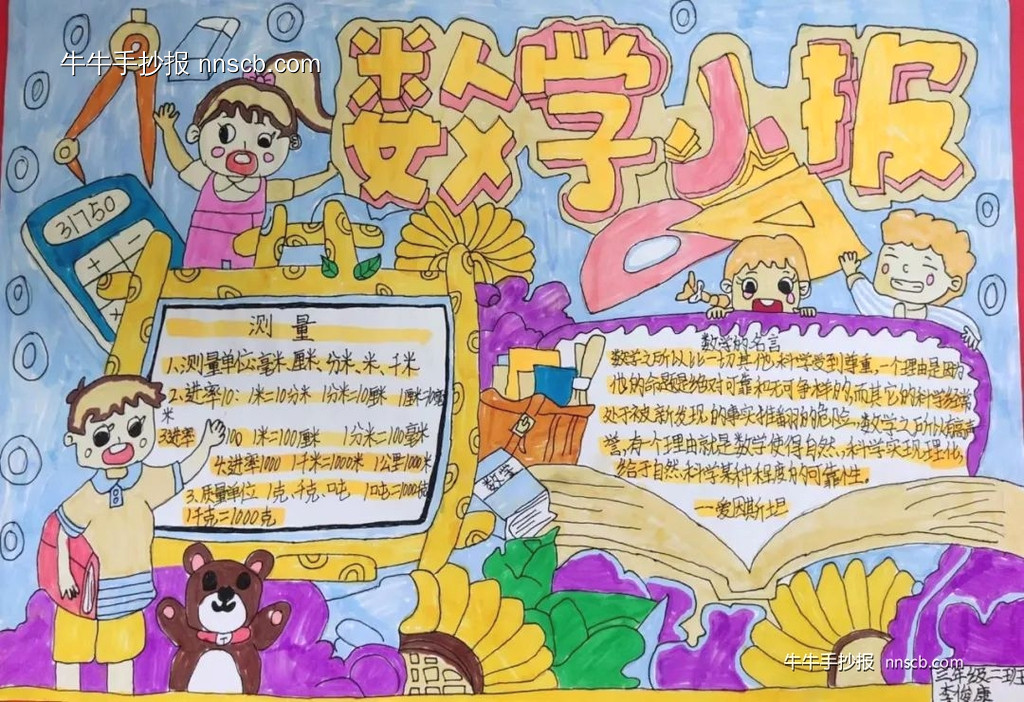 牛牛手抄报 nnscb.com
数学小报
31750
测量
1、测量单位:毫米、厘米、分米、米、千米
2、进率10: 1米=10分米 1分米=10厘米 1厘米=10毫
米
3进率 100 1米=100厘米 1分米=100毫米
4、进率1000 1千米=1000米 1公里=1000米
3、质量单位 1克、千克、吨 1吨=1000千克
1千克=1000克
数学
数学的名言
数学之所以比一切其他科学受到尊重,一个理由是因为
他的命题是绝对可靠和无可争辩的,而其它的科学经常
处于被新发现的事实推翻的危险。数学之所以有高声
誉,有一个理由就是数学使得自然科学实现理化,
给于自然科学某种程度的可靠性。
——爱因斯坦
牛牛手抄报 nnscb.com
三年级二班
李俊康